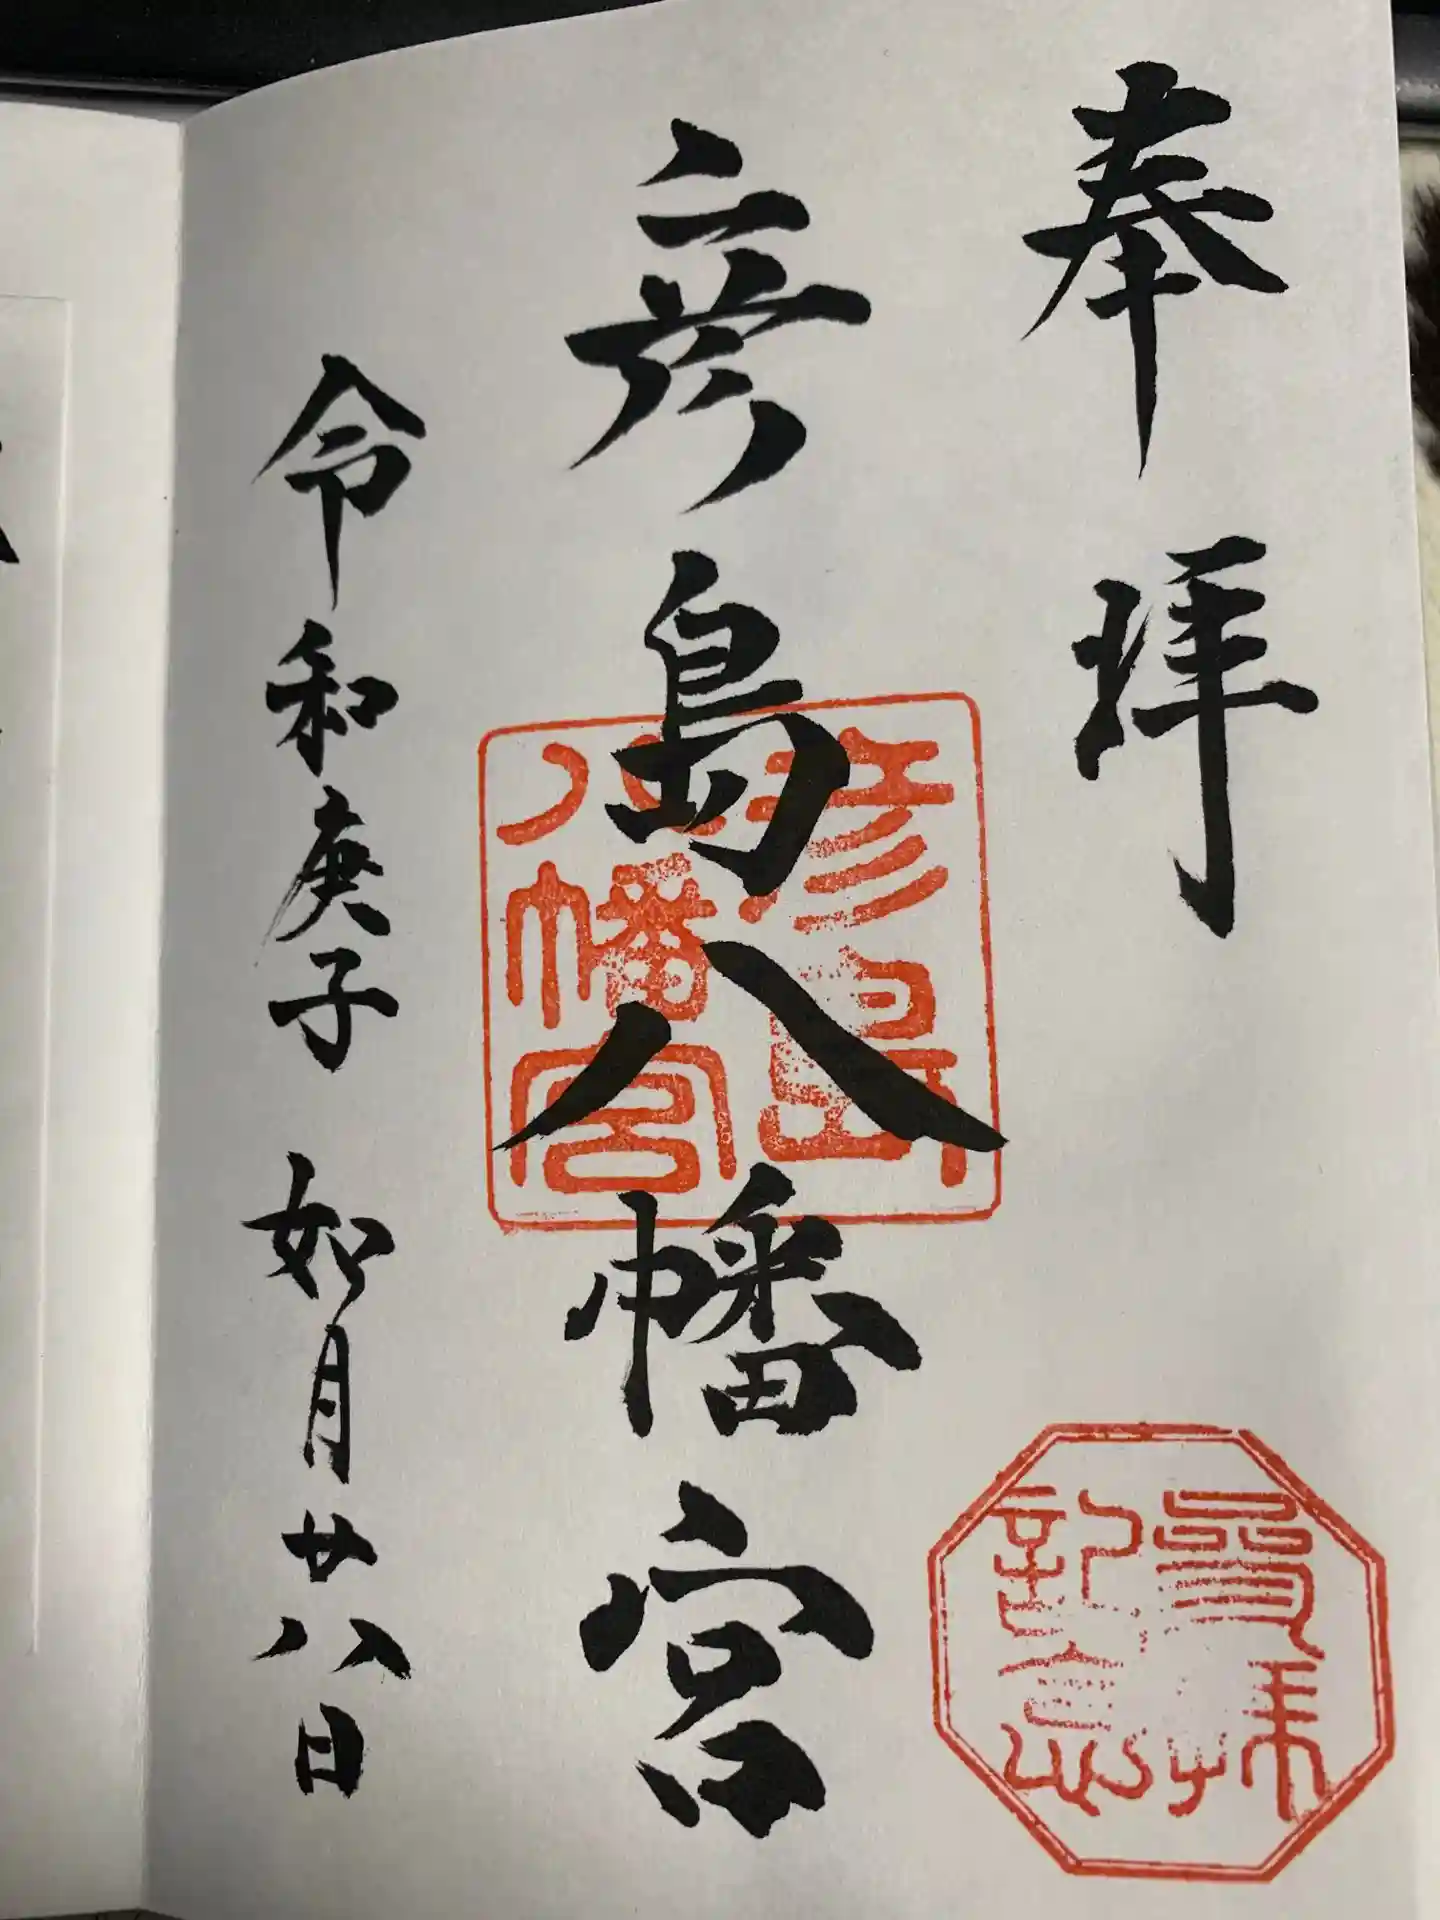 奉拝
彦島八幡宮
彦島
八幡宮
令和庚子 如月廿八日
参拝
記念